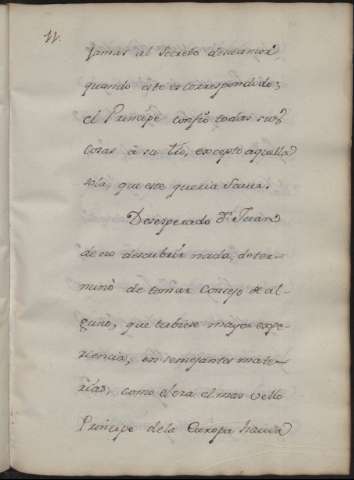 11.
Jamas al Secreto de un amor
quando este es correspondido;
el Principe confió todas sus
cosas à su tio, excepto aquella
sola, que este queria saver.
Desesperado Dn. Teran
de no descubrir nada, deter-
minò de tomar Consejo de al-
guno, que tubiese mayor expe-
riencia, en semejantes mate-
rias, como èl era el mas vello
Principe de la Europa havia